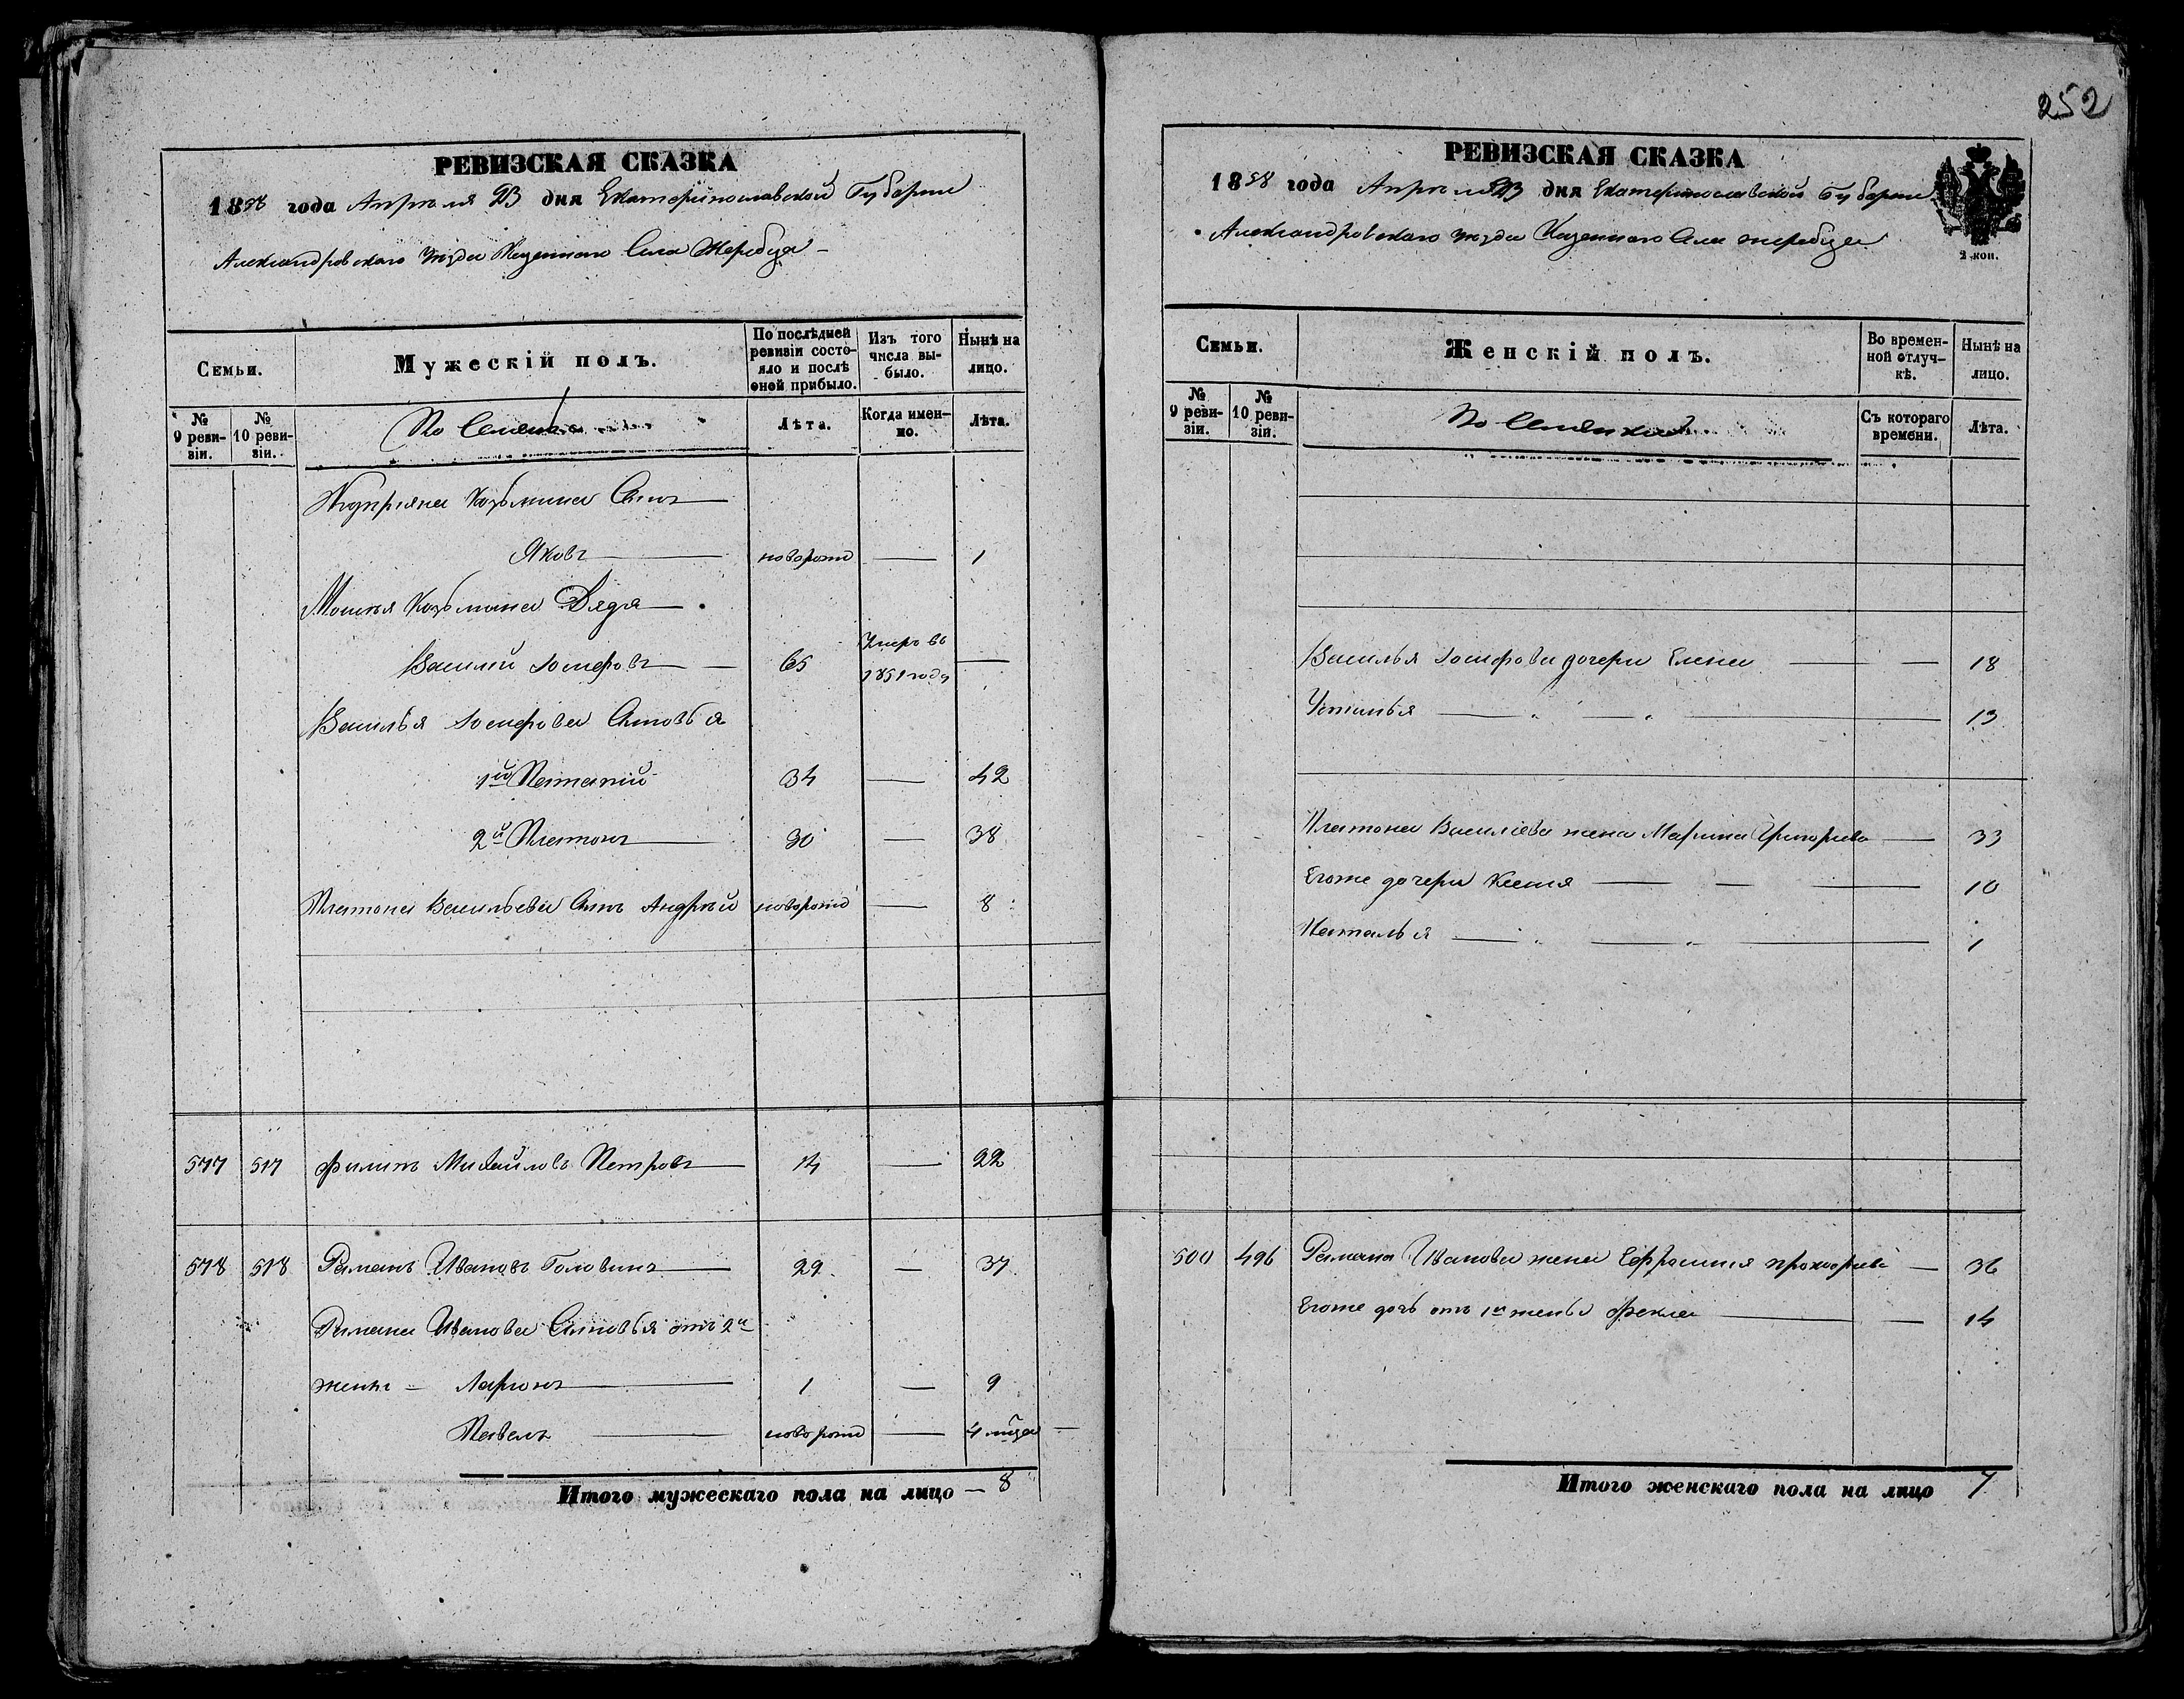 РЕВИЗСКАЯ СКАЗКА
1858 года Апреля 23 дня Екатеринославской Губернии
Александровскаго уезда Казеннаго Села Жеребца
Семьи.
Мужескій полъ.
По послѣдней ревизіи состояло и послѣ оной прибыло.
Изъ того числа выбыло.
Нынѣ на лицо.
№ 9 ревизіи.
№ 10 ревизіи.
Лѣта.
Когда именно.
Лѣта.
Куприяна Козьмина Сынъ
Яковъ новорожд — 1
Козьмина Дядя
Василий Iосифовъ 65 Умеръ въ 1851 года —
Василья Iосифова Сыновья
1й Патапий 34 — 42
2й Платонъ 30 — 38
Платона Васильева Сынъ Андрѣй новорожд — 8
577 517 Филипъ Михайловъ Петровъ 14 — 22
578 518 Романъ Ивановъ Головинъ 29 — 37
Романа Иванова Сыновья отъ 2й
жены – Ларионъ 1 — 9
Павелъ новорожд — 4 мѣца
Итого мужескаго пола на лицо — 8
252
РЕВИЗСКАЯ СКАЗКА
1858 года Апреля 23 дня Екатеринославской Губернии
Александровскаго уезда Казеннаго Села жеребца
2 коп.
Семьи.
Женскій полъ.
Во временной отлучкѣ.
Нынѣ на лицо.
№ 9 ревизіи.
№ 10 ревизіи.
Съ котораго времени.
Лѣта.
Василья Iосифова дочери Елена — — 18
Устинья — " — " — 13
Платона Василіева жена Марина Григорьева — 33
Егоже дочери Ксения — — — 10
Наталья — " — " — 1
500 496 Романа Иванова жена Ефросиния — 36
Егоже дочь отъ 1й жены Фекла — — 14
Итого женскаго пола на лицо 7